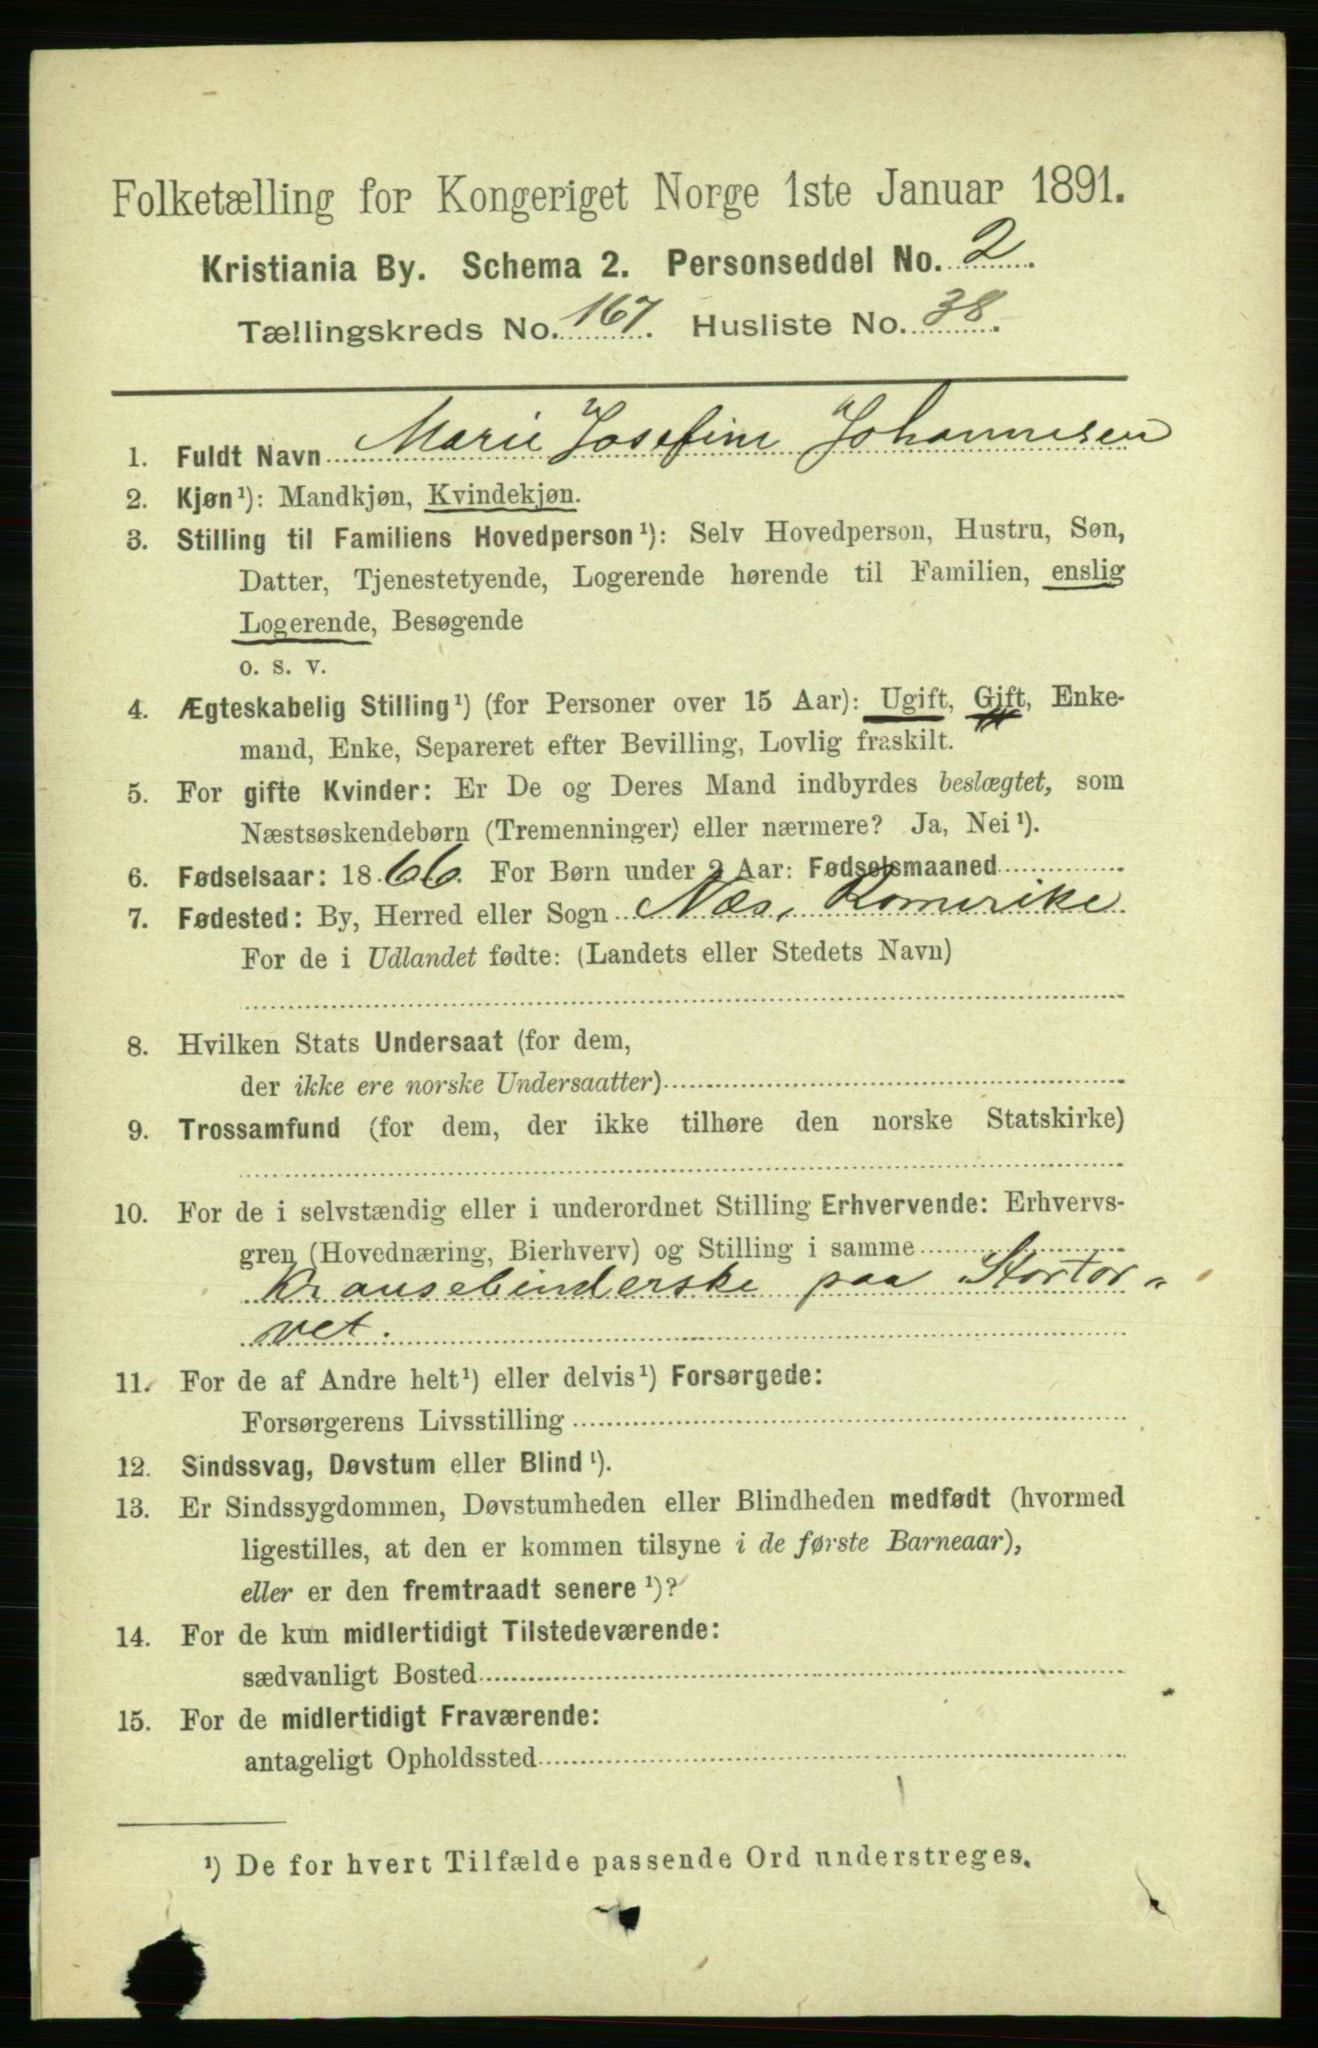 Folketælling for Kongeriget Norge 1ste Januar 1891.
Kristiania By. Schema 2. Personseddel No. 2.
Tællingskreds No. 167. Husliste No. 38.
1. Fuldt Navn Marie Josefine Johannesen
2. Kjøn¹): Mandkjøn, Kvindekjøn.
3. Stilling til Familiens Hovedperson¹): Selv Hovedperson, Hustru, Søn,
Datter, Tjenestetyende, Logerende hørende til Familien, enslig
Logerende, Besøgende
o. s. v.
4. Ægteskabelig Stilling¹) (for Personer over 15 Aar): Ugift, Gift, Enke-
mand, Enke, Separeret efter Bevilling, Lovlig fraskilt.
5. For gifte Kvinder: Er De og Deres Mand indbyrdes beslægtet, som
Næstsøskendebørn (Tremenninger) eller nærmere? Ja, Nei¹).
6. Fødselsaar: 1866. For Børn under 2 Aar: Fødselsmaaned
7. Fødested: By, Herred eller Sogn Næs, Romerike
For de i Udlandet fødte: (Landets eller Stedets Navn)
8. Hvilken Stats Undersaat (for dem,
der ikke ere norske Undersaatter)
9. Trossamfund (for dem, der ikke tilhøre den norske Statskirke)
10. For de i selvstændig eller i underordnet Stilling Erhvervende: Erhvervs-
gren (Hovednæring, Bierhverv) og Stilling i samme
Kransebinderske paa Stortor-
vet.
11. For de af Andre helt¹) eller delvis¹) Forsørgede:
Forsørgerens Livsstilling
12. Sindssvag, Døvstum eller Blind¹).
13. Er Sindssygdommen, Døvstumheden eller Blindheden medfødt (hvormed
ligestilles, at den er kommen tilsyne i de første Barneaar),
eller er den fremtraadt senere¹)?
14. For de kun midlertidigt Tilstedeværende:
sædvanligt Bosted
15. For de midlertidigt Fraværende:
antageligt Opholdssted
¹) De for hvert Tilfælde passende Ord understreges.